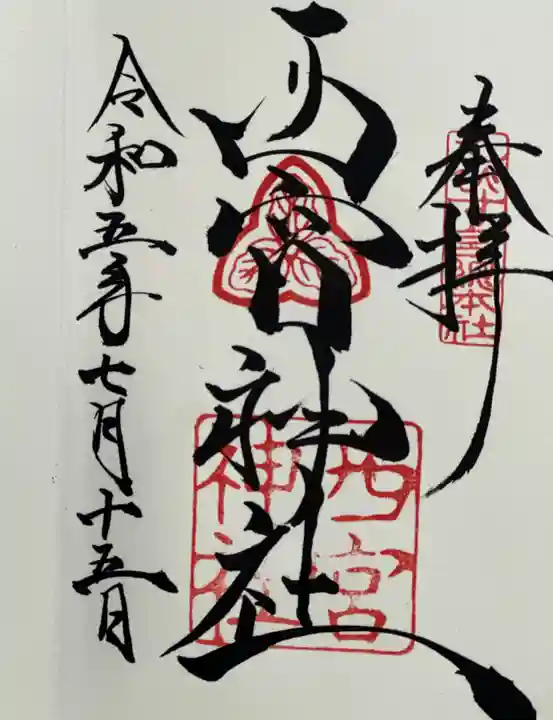 奉拝
西宮神社
令和五年七月十五日
西宮
神社